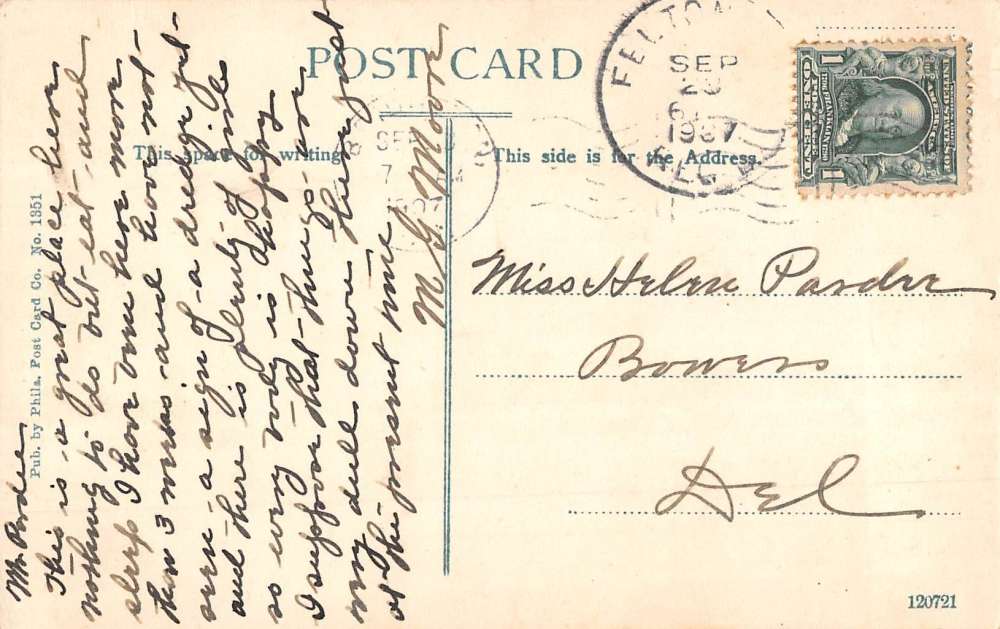 POST CARD
This space for writing
This side is for the Address.
FELTON
SEP
28
1907
REC'D
Miss Helen Pardee
Bowers
Del
Mr. Pardee
This is a great place here
nothing to do but eat and
sleep I have been here more
than 3 weeks and have not
seen a sign of a dredge yet
and there is plenty of girls
so every body is happy
I suppose that things are
very dull down there just
at the present time
M. G. Moore
Pub. by Phila. Post Card Co. No. 1351
120721